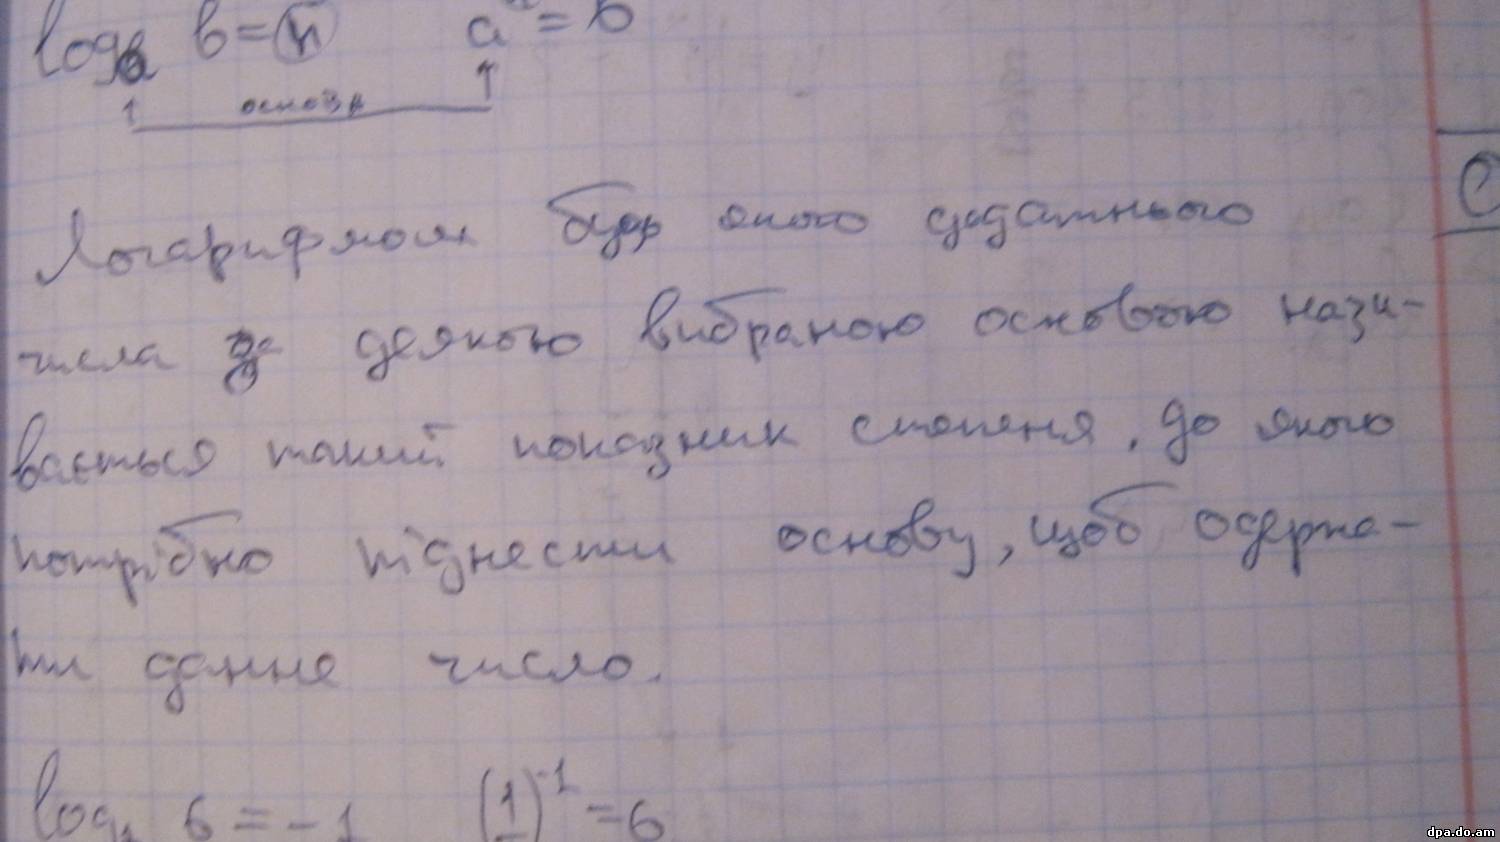 logₐ b = n aⁿ = b
основа
Логарифмом будь якого додатнього
числа за деякою вибраною основою нази-
вається такий показник степеня, до якого
потрібно піднести основу, щоб одержа-
ти данне число.
log 6 = -1 (1)⁻¹ = 6
dpa.do.am